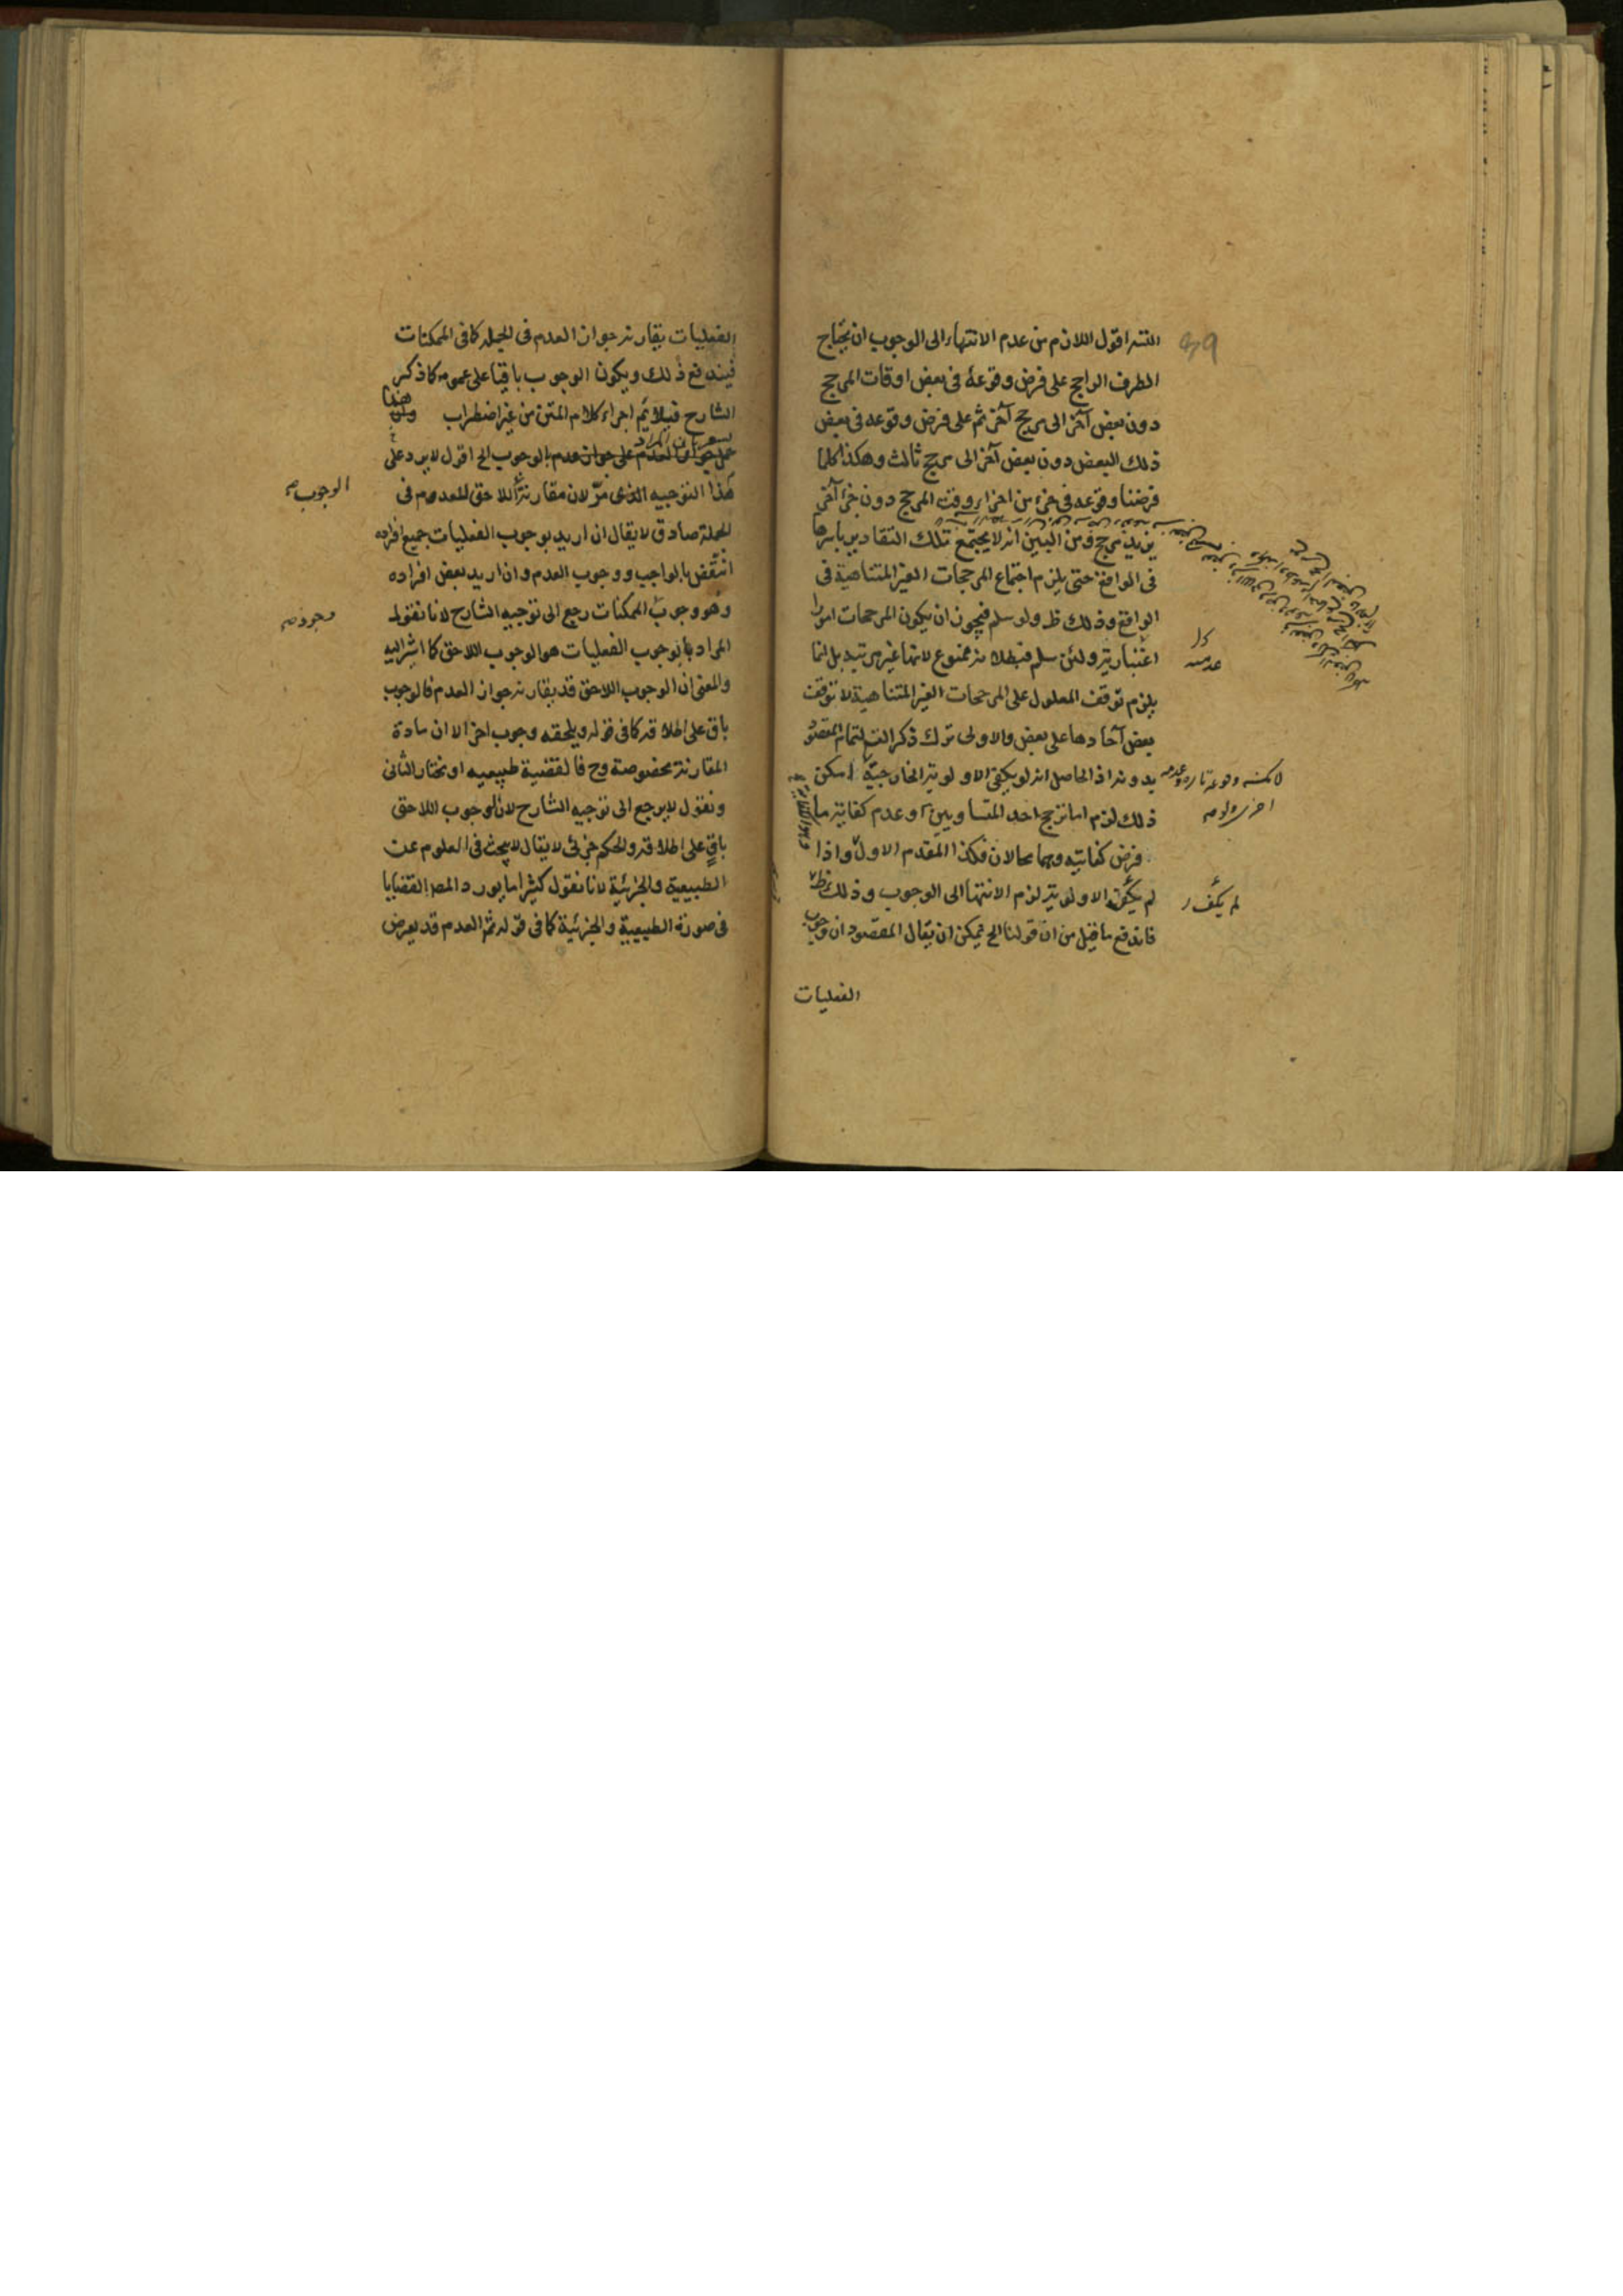 التسـ اقول اللازم من عدم الانتهاء الى الوجوب ان يحتاج
الطرف الراجح على فرض وقوعه فى بعض اوقات المرجح
دون بعض آخر الى مرجح آخر ثم على فرض وقوعه فى بعض
ذلك البعض دون بعض آخر الى مرجح ثالث وهكذا كلما
فرضنا وقوعه فى جزء من اجزاء وقت المرجح دون جزء آخر
يزيد مرجح ومن البين انه لا يجتمع تلك التقادير باسرها
فى الواقع حتى يلزم اجتماع المرجحات الغير المتناهية فى
الواقع وذلك ظ ولو سلم فيجوز ان يكون المرجحات امورا
اعتبارية ولئن سلم فبطلانه ممنوع لانها غير مرتبة بل انما
يلزم توقف المعلول على المرجحات الغير المتناهية لا توقف
بعض آحادها على بعض والاولى ترك ذكر التسـ لتمام المقصود
بدونه اذ الحاصل انه لو يكفى الاولوية الخارجية امكن
ذلك لزم اما ترجح احد المتساويين او عدم كفاية ما
فرض كفايته وهما محالان فكذا المقدم الاول واذا
لم يكف الاولوية لزم الانتها الى الوجوب وذلك ظ
فاندفع ما قيل من ان قولنا الخ يمكن ان يقال المقصود ان وجوب
الفعليات
لم يكف
الفعليات يقارنه جواز العدم فى الجملة كما فى الممكنات
فيندفع ذلك ويكون الوجوب باقيا على عمومه كما ذكر
الشارح فيلايم اجراء كلام المتن من غير اضطراب
بالوجوب الخ اقول لا يرد على
هذا التوجيه الذى مرّ لان مقارنة اللاحق للعدم فى
الوجوب صح
الجملة صادق لا يقال ان اريد بوجوب الفعليات جميع افراده
انتقض بالواجب ووجوب العدم وان اريد بعض افراده
وهو وجوب الممكنات رجع الى توجيه الشارح لانا نقول
وجود صح
المراد بالوجوب الفعليات هو الوجوب اللاحق كما اشير اليه
والمعنى ان الوجوب اللاحق قد يقارنه جواز العدم فالوجوب
باق على اطلاقه كما فى قوله ويلحقه وجوب آخر الا ان مادة
المقارنة مخصوصة وح فالقضية طبيعيه او نختار الثانى
ونقول لا يرجع الى توجيه الشارح لان الوجوب اللاحق
باق على اطلاقه والحكم جزئى لا يقال لا يبحث فى العلوم عن
الطبيعية والجزئية لانا نقول كثيرا ما يورد المص القضايا
فى صورة الطبيعية والجزئية كما فى قوله ثم العدم قد يعرض